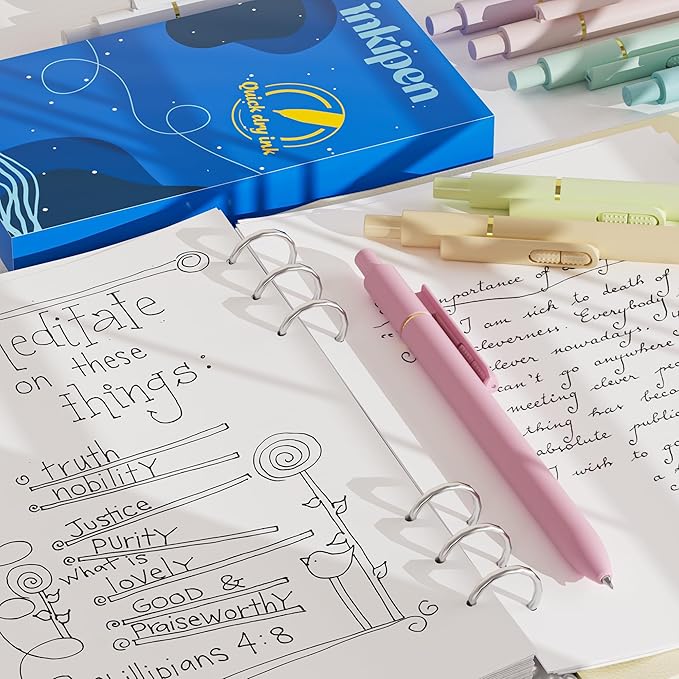 inkipen
Quick dry ink
editate
on these
things:
truth
nobility
Justice
Purity
what is
lovely
GOOD &
Praiseworthy
hillipians 4:8
mportance of
I am sick to death of
cleverness. Everybody
clever nowadays.
can't go anywhere
meeting clever pe
thing has beco
absolute public
I wish to go